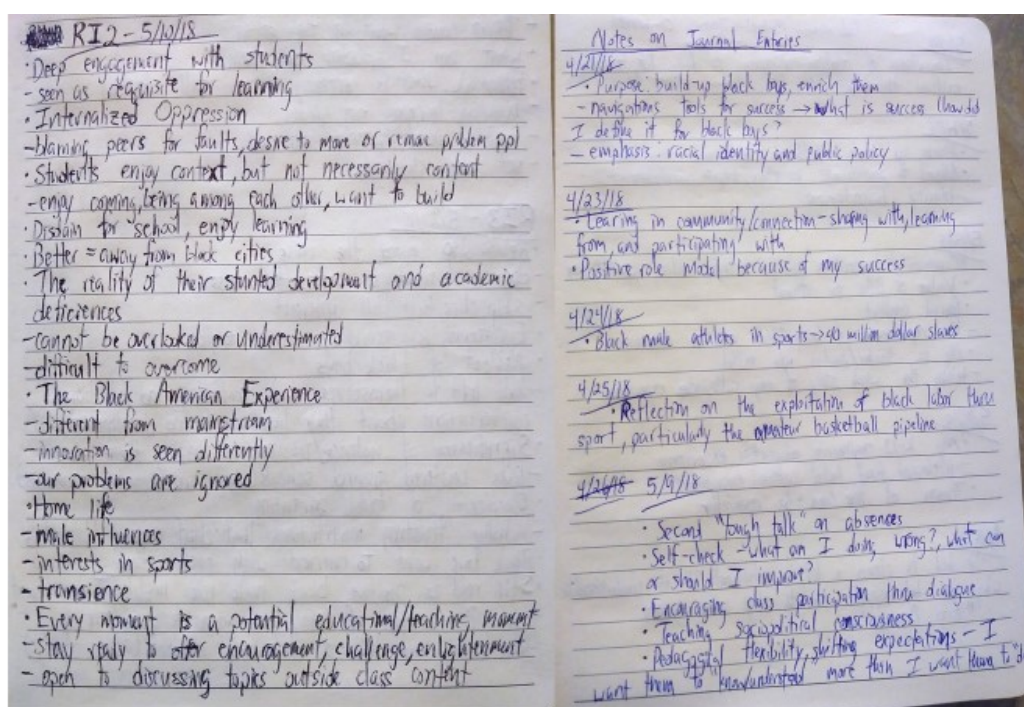 RI2 - 5/10/18
· Deep engagement with students
- seen as requisite for learning
· Internalized Oppression
- blaming peers for faults, desire to move or remove problem ppl
· Students enjoy context, but not necessarily content
- enjoy coming, being among each other, want to build
· Disdain for school, enjoy learning
· Better = away from black cities
· The reality of their stunted development and academic
deficiences
- cannot be overlooked or underestimated
- difficult to overcome
· The Black American Experience
- different from mainstream
- innovation is seen differently
- our problems are ignored
· Home life
- male influences
- interests in sports
- transience
· Every moment is a potential educational/teaching moment
- stay ready to offer encouragement, challenge, enlightenment
- open to discussing topics outside class content
Notes on Journal Entries
4/21/18
· Purpose: build-up black boys, enrich them
- navigations tools for success → what is success (how do
I define it for black boys?
- emphasis: racial identity and public policy
4/23/18
· Learing in community/connection - sharing with, learning
from and participating with
· Positive role model because of my success
4/24/18
· Black male athletes in sports → 40 million dollar slaves
4/25/18
· Reflection on the exploitation of black labor thru
sport, particularly the amateur basketball pipeline
4/26/18 5/9/18
· Second "tough talk" on absences
· Self-check - what am I doing wrong?, what can
or should I improve?
· Encouraging class participation thru dialogue
· Teaching sociopolitical consciousness
· Pedagogical flexibility, shifting expectations - I
want them to "know/understand" more than I want them to "do